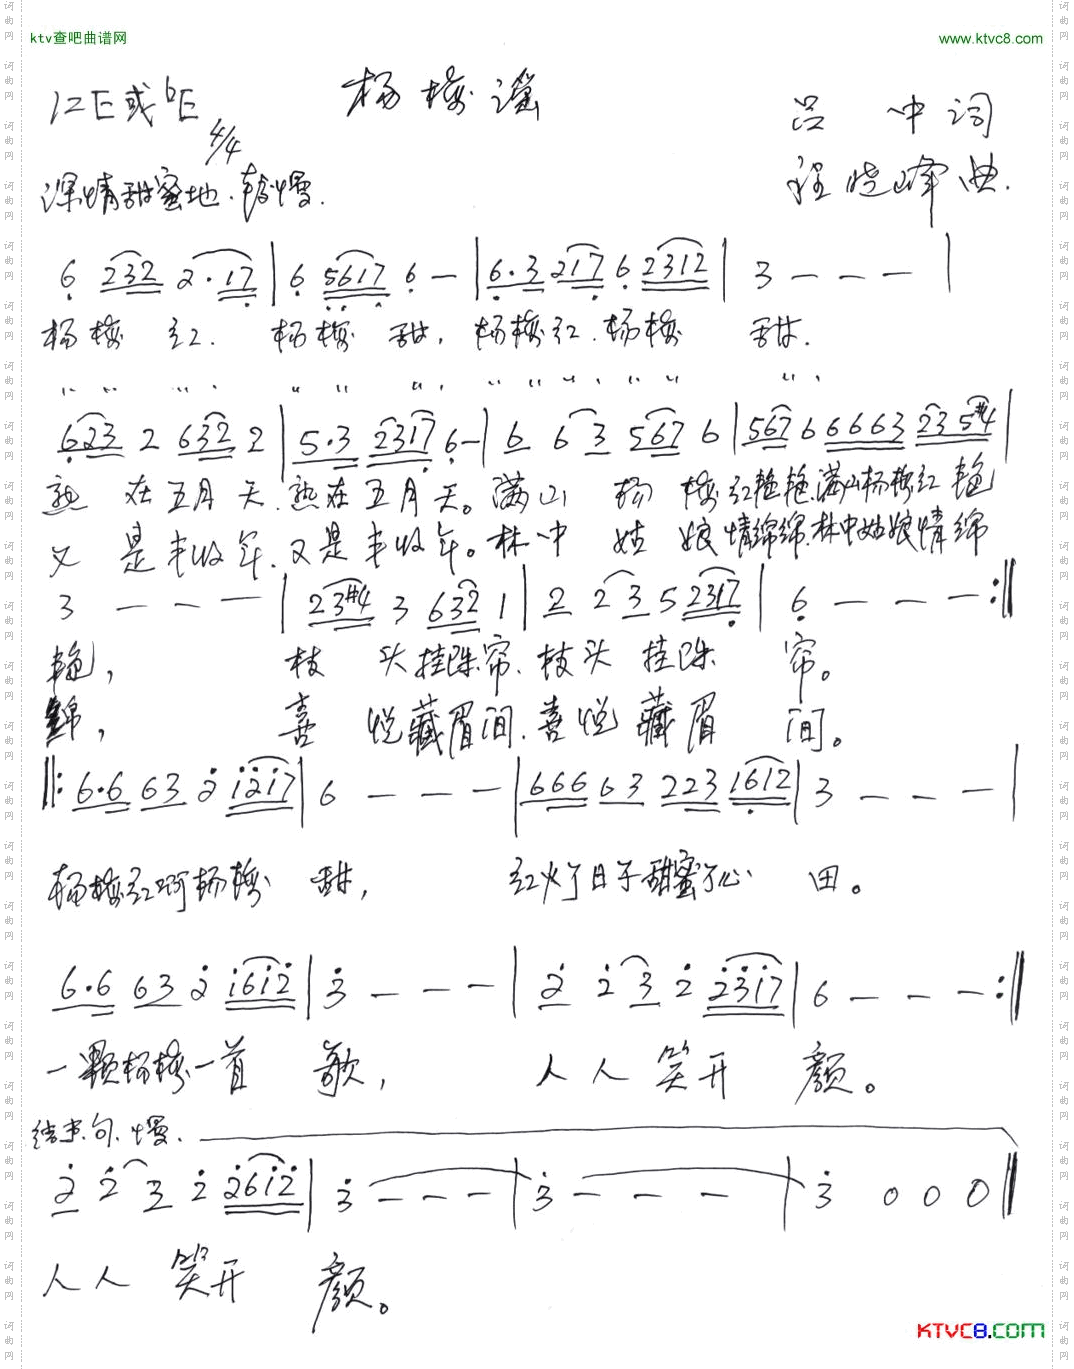 ktv查吧曲谱网
www.ktvc8.com
杨梅谣
1=E或bE
4/4
吕 冲词
程晓峰曲.
深情甜蜜地.较慢.
6 232 2·17 | 6 5617 6 — | 6·3 217 6 2312 | 3 — — — |
杨梅 红. 杨梅 甜, 杨梅红.杨梅 甜.
〃 〃 〃. 〃 〃 〃. 〃 〃 〃. 〃 〃 〃.
623 2 632 2 | 5·3 2317 6 — | 6 6 3 567 6 | 567 6 6663 235#4 |
熟 在五月 天.熟在五月天。满山 杨 梅红艳艳.满山杨梅红艳
又 是丰收年.又是丰收年。林中 姑 娘情绵绵.林中姑娘情绵
3 — — — | 23#4 3 632 1 | 2 2 3 5 2317 | 6 — — — :‖
艳, 枝 头挂珠帘.枝头 挂珠 帘。
绵, 喜 悦藏眉间.喜悦 藏眉 间。
‖: 6·6 63 2 1217 | 6 — — — | 666 63 223 1612 | 3 — — — |
杨梅红啊杨梅 甜, 红火了日子甜蜜了心 田。
6·6 63 2 1612 | 3 — — — | 2 2 3 2 2317 | 6 — — — :‖
一颗杨梅一首 歌, 人人 笑开 颜。
结束句.慢.
2 2 3 2 2612 | 3 — — — | 3 — — — | 3 0 0 0 ‖
人人 笑开 颜。
KTVC8.COM
词曲网